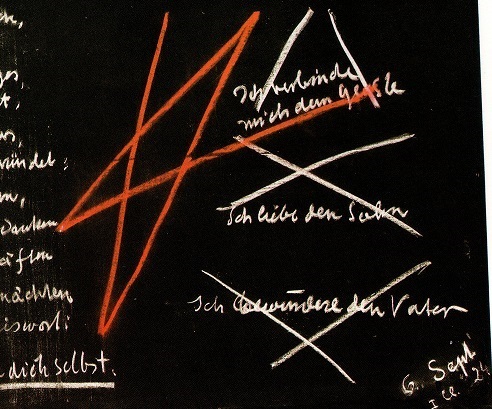 ündet:
danken
äften
mächten
iswort:
dich selbst.
Ich verbinde
mich dem Geiste
Ich liebe den Sohn
Ich bewundere den Vater
6. Sept
I Cl. 24